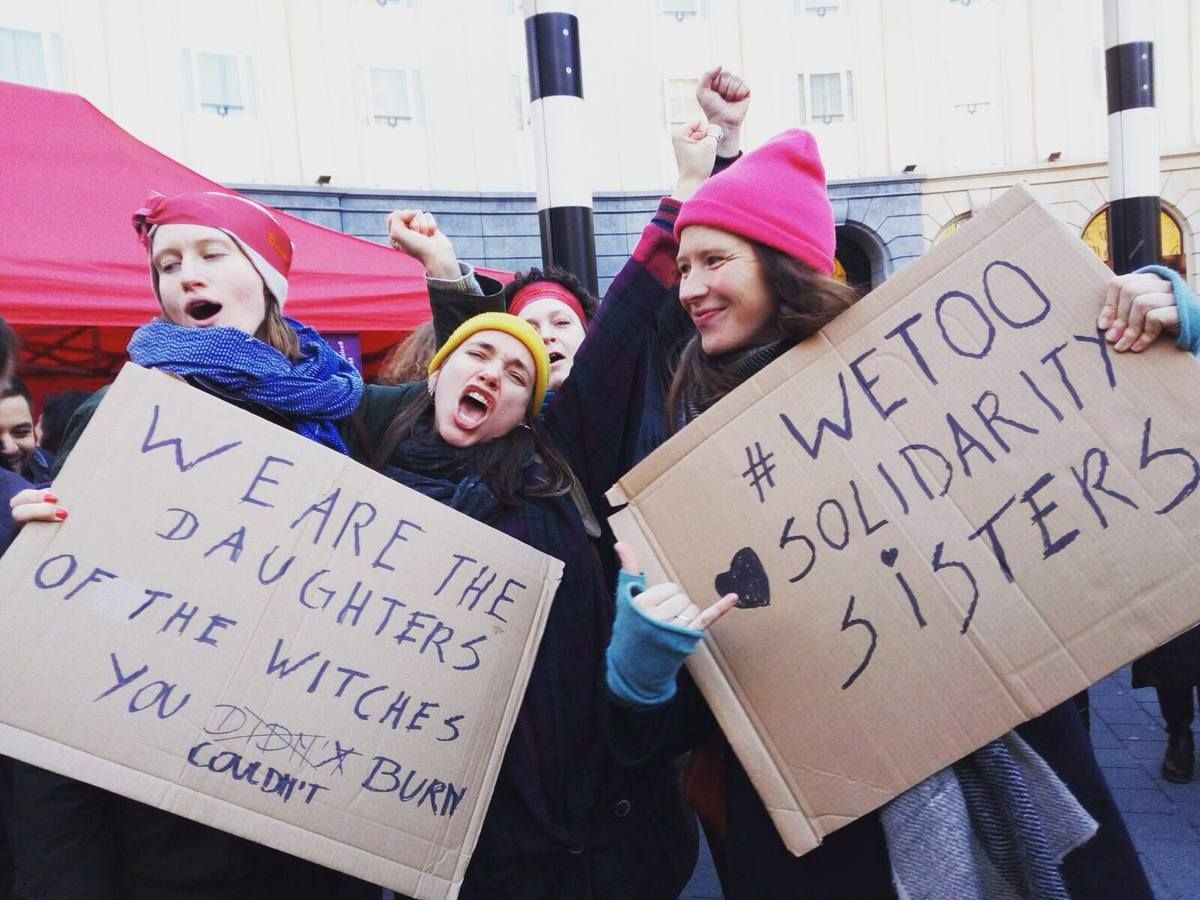 WE ARE THE
DAUGHTERS
OF THE WITCHES
YOU DIDN'T BURN
COULDN'T
#WETOO
SOLIDARITY
SiSTERS